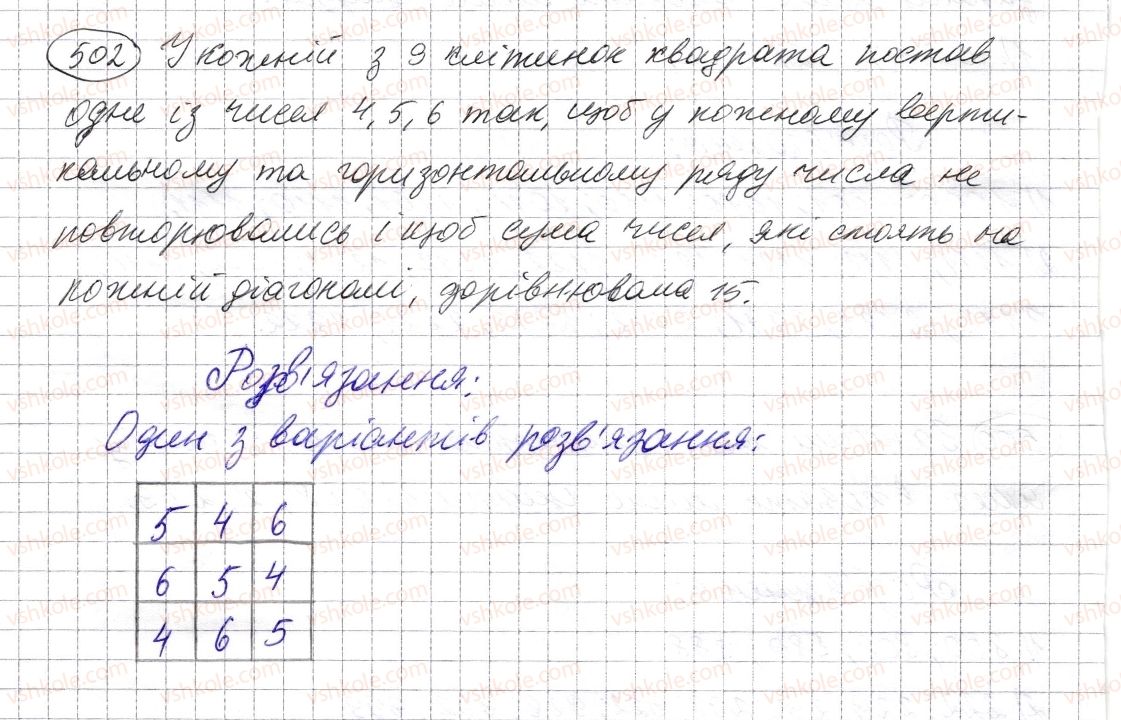 502 У кожній з 9 клітинок квадрата постав
одне із чисел 4, 5, 6 так, щоб у кожному верти-
кальному та горизонтальному ряду числа не
повторювались і щоб сума чисел, які стоять на
кожній діагоналі, дорівнювала 15.
Розв'язання:
Один з варіантів розв'язання:
5 4 6
6 5 4
4 6 5